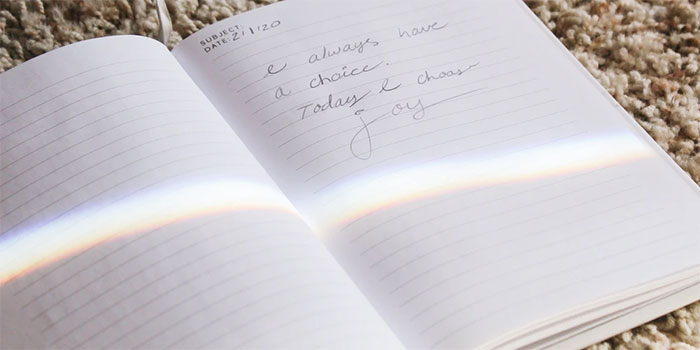 SUBJECT:
DATE: 2/1/20
I always have
a choice.
Today I choose
joy